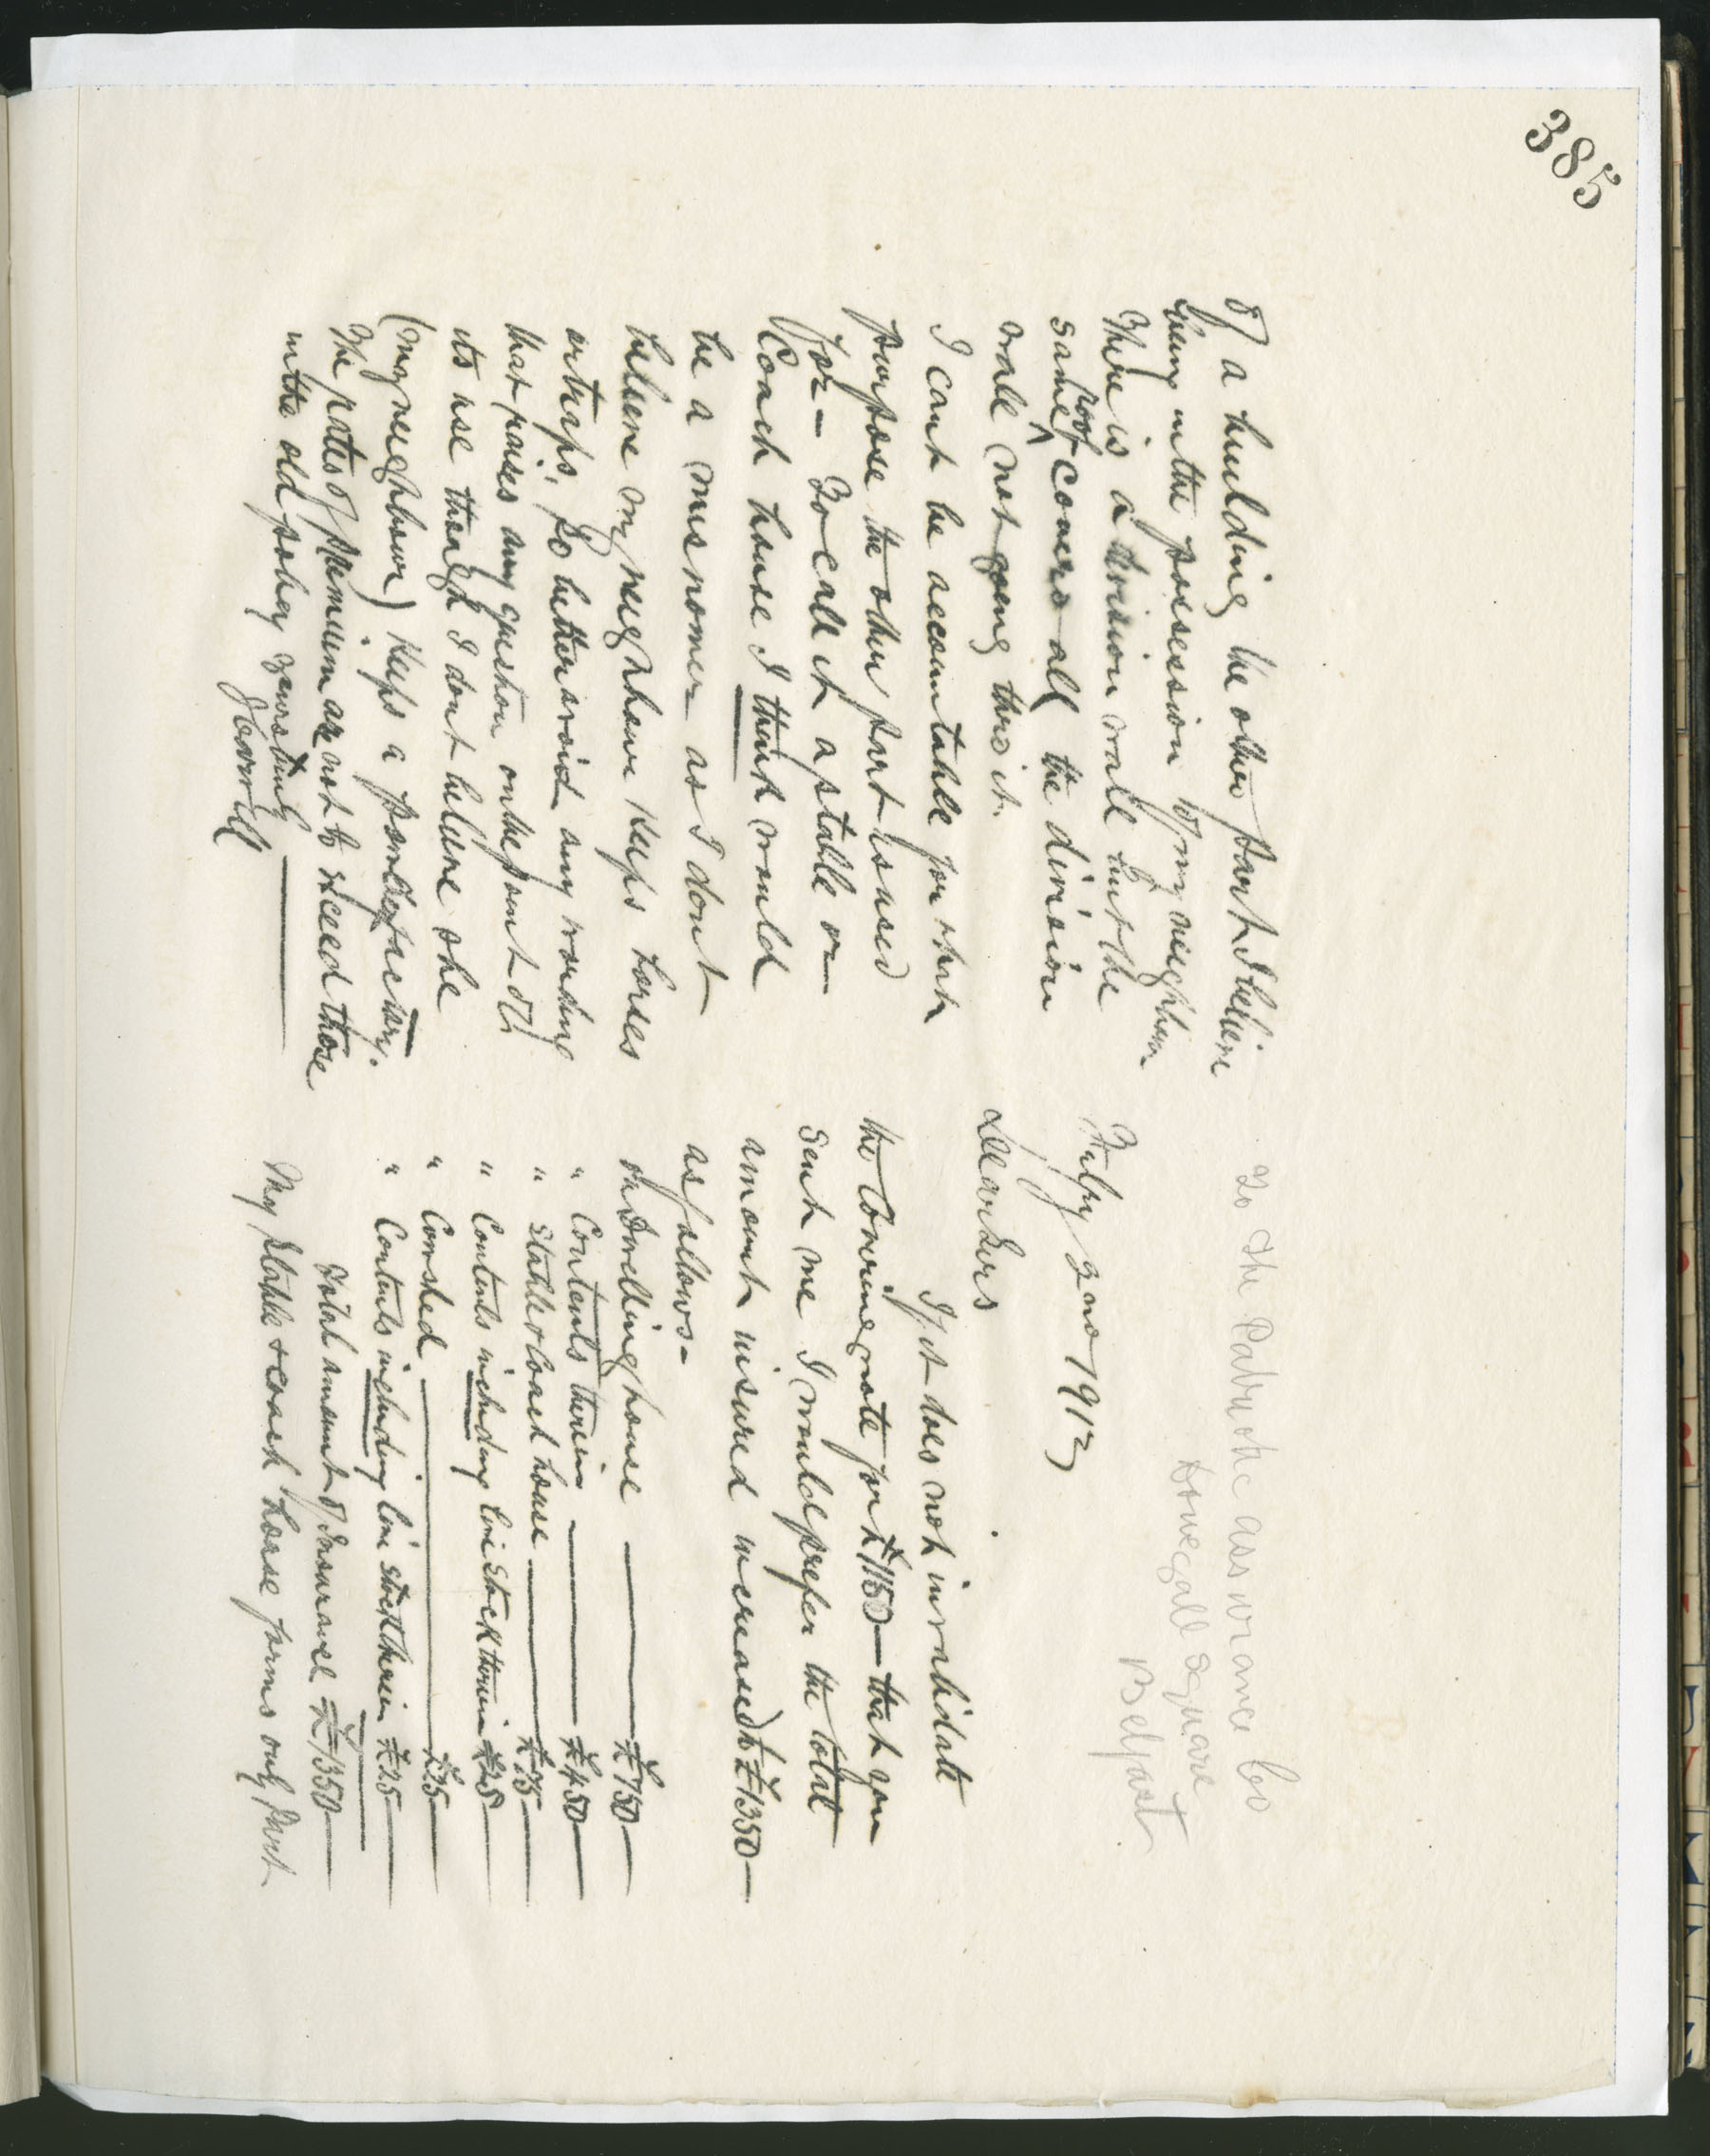 385
To the Patriotic assurance Co
Donegall Square
Belfast
Feby 2nd 1912
Dear Sirs
If it does not invalidate
the Covering note for £1150 - that you
sent me I would prefer the total
amount insured increased to £1350 -
as follows -
on Dwelling house £750 -
" Contents therein £450 -
" Stable & Coach house £75 -
" Contents including live stock therein £25
" Cowshed £25 -
" Contents including live stock therein £25 -
Total amount of Insurance £1350 -
My stable & coach house forms only part
of a building the other part I believe
being in the possession of my neighbour
There is a division wall but the
same roof covers all the division
wall not going thro it.
I cant be accountable for what
purpose the other part is used
for - To call it a stable or
Coach house I think would
be a misnomer as I dont
believe my neighbour keeps horses
or traps, so better avoid any wording
that raises any question on the point of
its use though I dont believe she
(my neighbour) keeps a bomb factory.
The rates of premium are not to exceed those
in the old policy yours truly